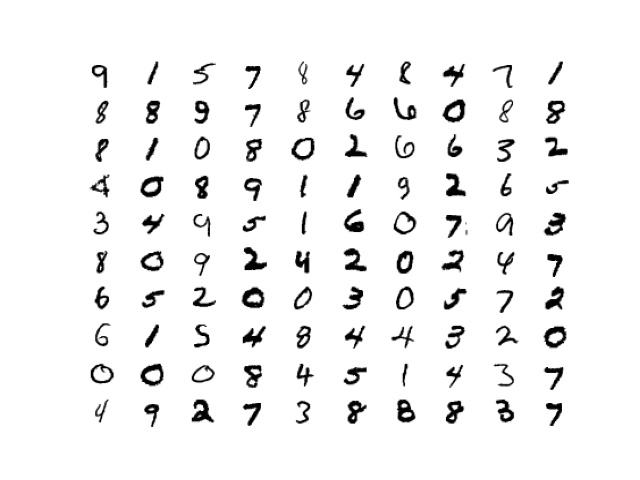 9 1 5 7 8 4 8 4 7 1
8 8 9 7 8 6 6 0 8 8
8 1 0 8 0 2 6 6 3 2
4 0 8 9 1 1 9 2 6 5
3 4 9 5 1 6 0 7 9 3
8 0 9 2 4 2 0 2 4 7
6 5 2 0 0 3 0 5 7 2
6 1 5 4 8 4 4 3 2 0
0 0 0 8 4 5 1 4 3 7
4 9 2 7 3 8 8 8 3 7